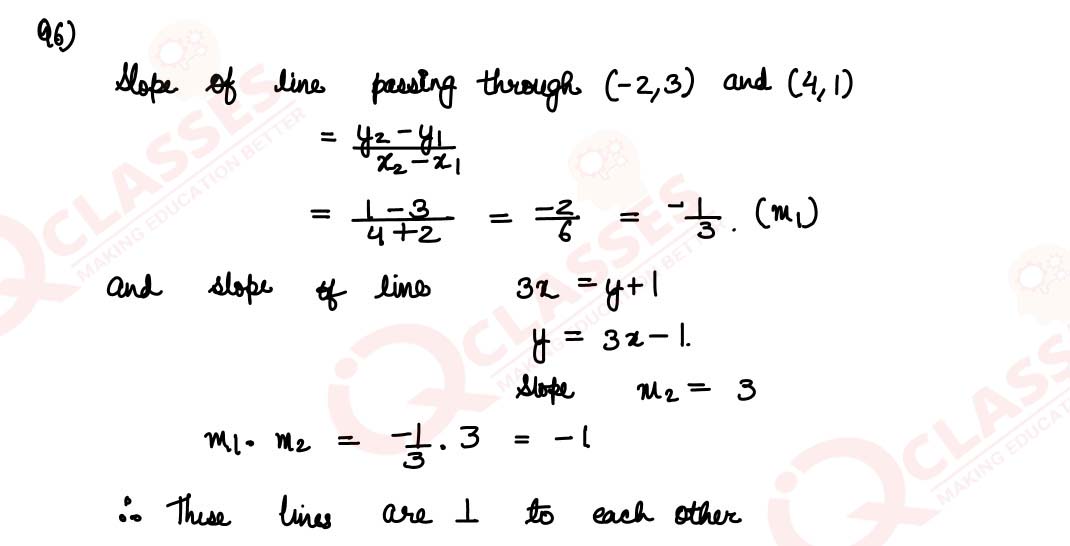 Q6)
Slope of line passing through (-2,3) and (4,1)
= y₂-y₁/x₂-x₁
= 1-3/4+2 = -2/6 = -1/3. (m₁)
and slope of line 3x = y+1
y = 3x-1.
Slope m₂ = 3
m₁. m₂ = -1/3 . 3 = -1
∴ These lines are ⊥ to each other
iQ CLASSES
MAKING EDUCATION BETTER